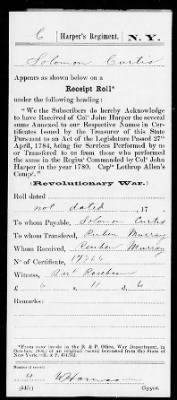 C | Harper's Regiment. | N. Y.
Solomon Curtis
Appears as shown below on a
Receipt Roll*
under the following heading:
"We the Subscribers do hereby Acknowledge
to have Received of Col° John Harper the several
sums Annexed to our Respective Names in
Certificates Issued by the Treasurer of this State
Pursuant to an Act of the Legislature Passed 27th
April, 1784, being for Services Performed by us
or Transfered to us from those who performed
the same in the Regim' Commanded by Col° John
Harper in the year 1780. Cap° Lothrop Allen's
Comp°."
(Revolutionary War.)
Roll dated
not dated, 17
To whom Payable, Solomon Curtis
To whom Transfered, Reuben Murray
Whom Received, Reuben Murray
N° of Certificate, 19766
Witness,
£ 6 11 6
Remarks:
*From copy (made in the R. & P. Office, War Department, in
of an original record borrowed from the State of
New York.—R. & P.
Copyist.